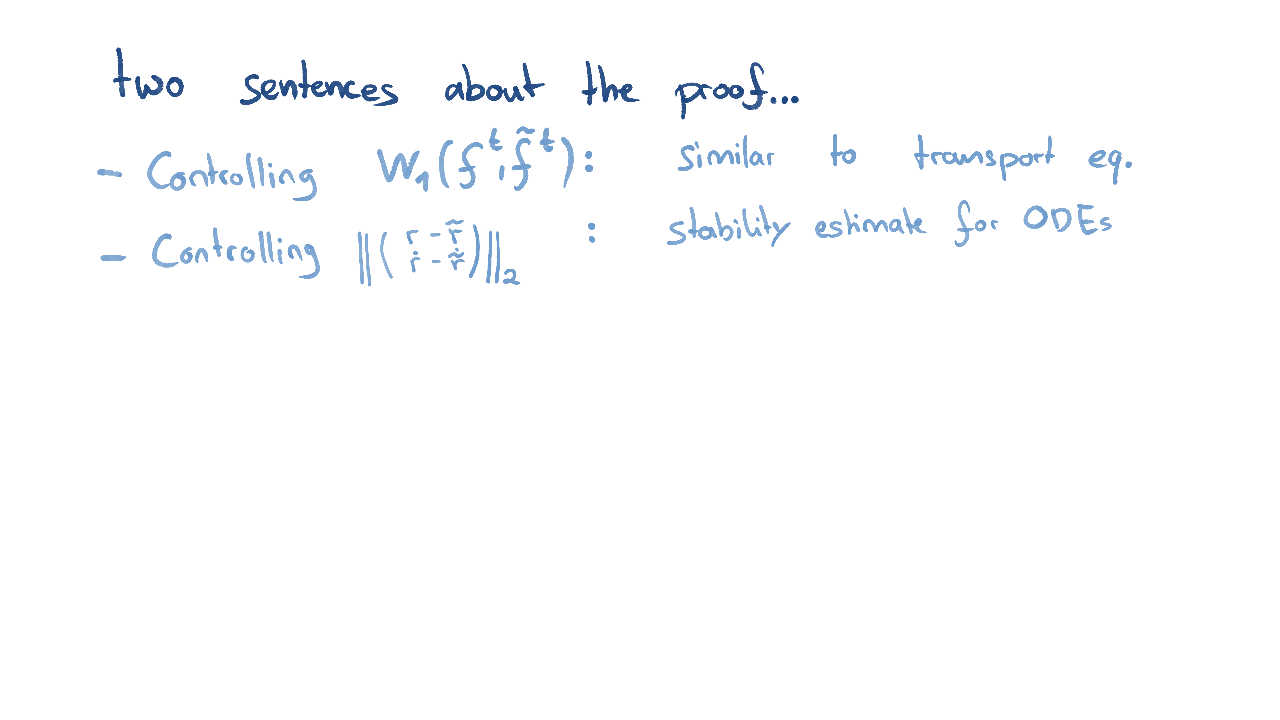 two sentences about the proof...
- Controlling W₁(fᵗ, f̃ᵗ): similar to transport eq.
- Controlling ‖(r - r̃ ṙ - ṙ̃)‖₂ : stability estimate for ODEs